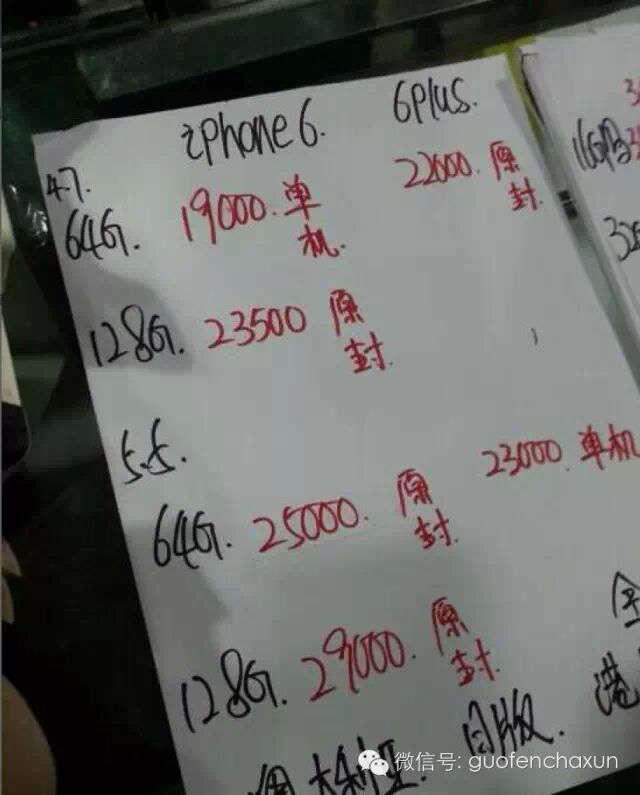 iPhone6. 6Plus.
4.7.
64G. 19000.单机. 22600.原封.
128G. 23500 原封.
5.5.
64G. 25000. 原封. 23000.单机
128G. 29000. 原封.
澳大利亚. 日版. 港
全
16G
微信号: guofenchaxun